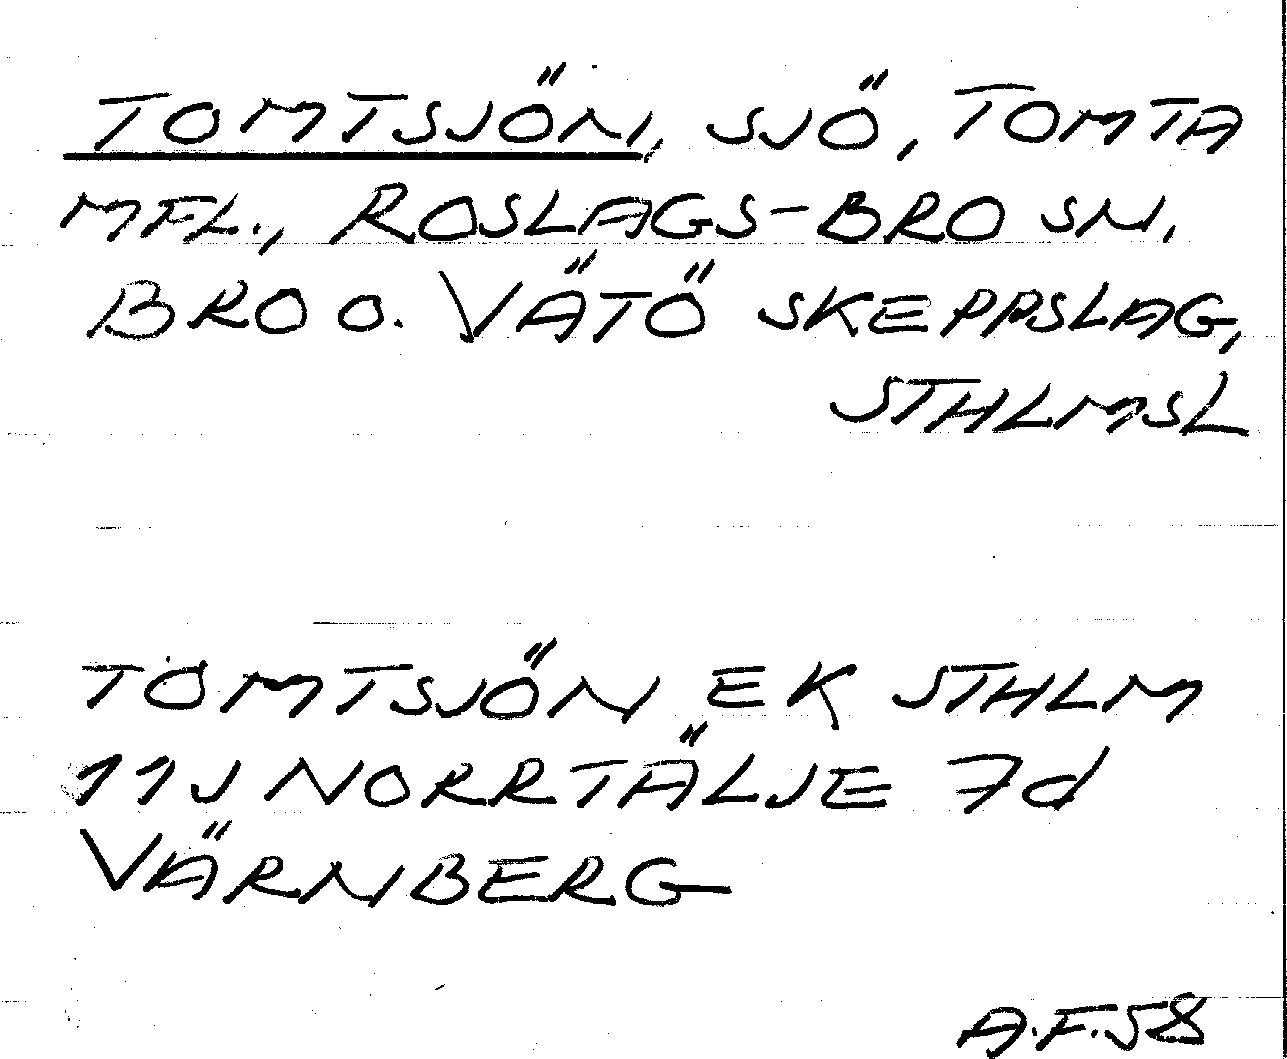 TOMTSJÖN, SJÖ, TOMTA
MFL., ROSLAGS-BRO SN,
BRO O. VÄTÖ SKEPPSLAG,
STHLMSL
TOMTSJÖN EK STHLM
11J NORRTÄLJE 7d
VÄRNBERG
A.F.58